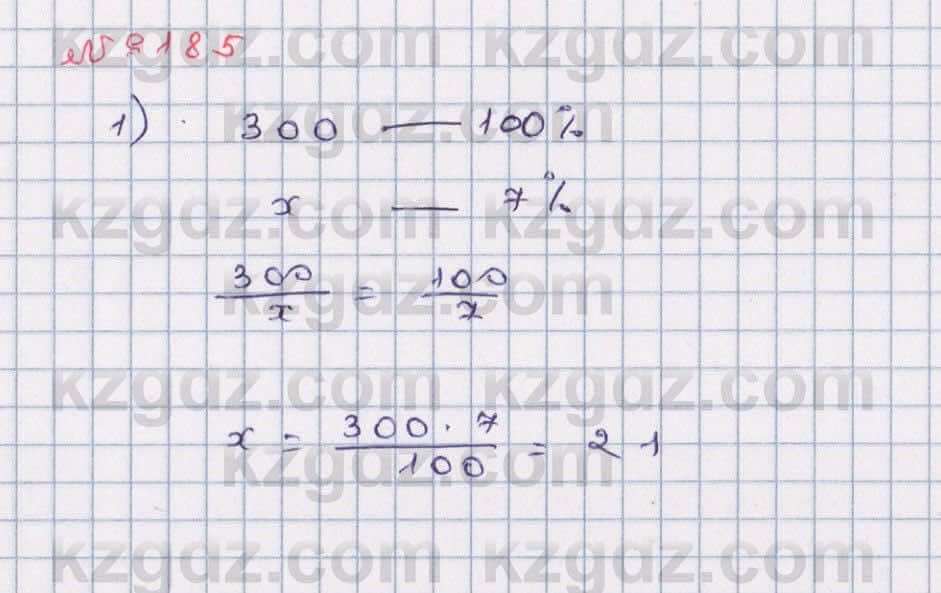 № 185
1) 300 — 100%
x — 7%
300/x = 100/7
x = 300·7/100 = 21
kzgdz.com kzgdz.com
kzgdz.com
kzgdz.com kzgdz.com
kzgdz.com
kzgdz.com kzgdz.com
kzgdz.com
kzgdz.com kzgdz.com